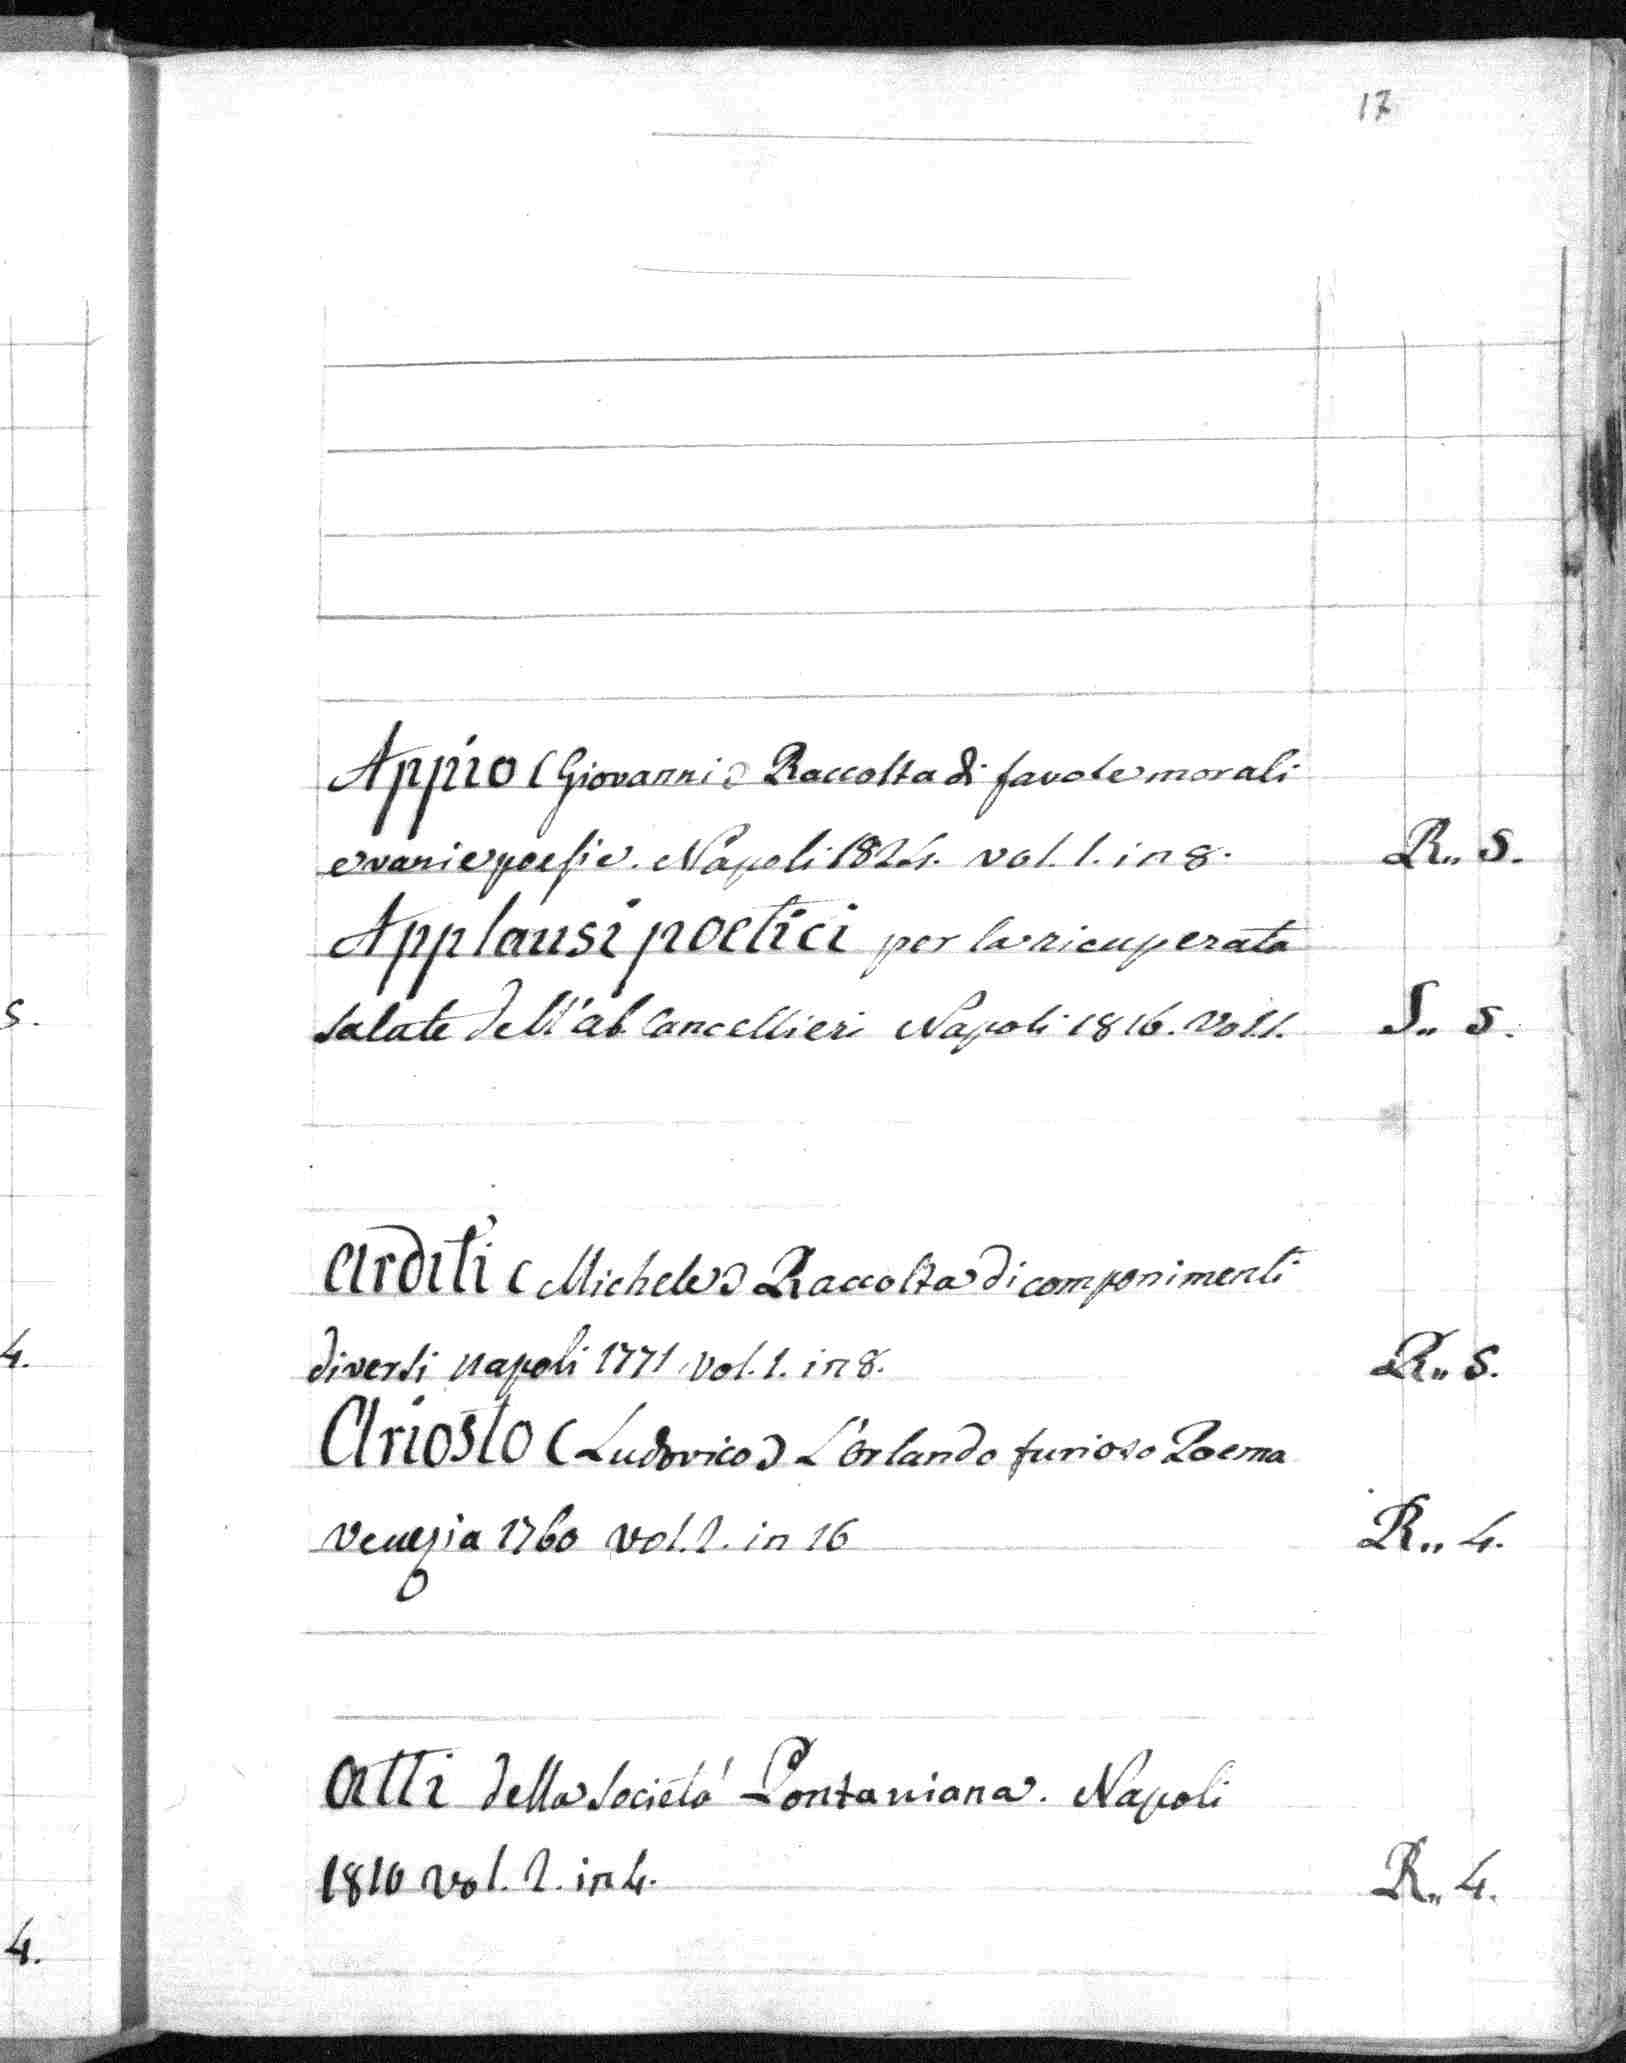 17
Appio (Giovanni) Raccolta di favole morali
e varie poesie. Napoli 1824. vol. 1. in 8. R,, 5.
Applausi poetici per la ricuperata
salute dell'ab. Cancellieri Napoli 1816. vol. 1. S,, 5.
5.
Arditi (Michele) Raccolta di componimenti
diversi napoli 1771 vol. 1. in 8. R,, 5.
4.
Ariosto (Ludovico) L'Orlando furioso Poema
Venezia 1760 vol. 2. in 16 R,, 4.
Atti della Societá Pontaniana. Napoli
1810 vol. 2. in 4. R,, 4.
4.